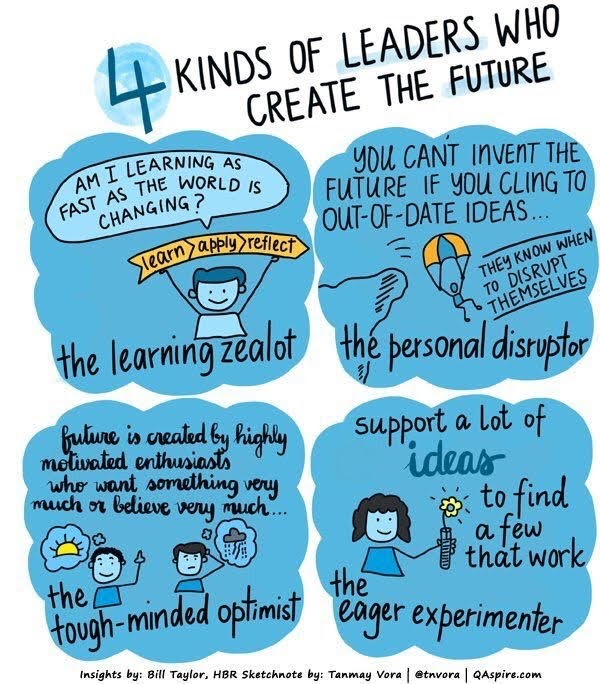 4 KINDS OF LEADERS WHO
CREATE THE FUTURE
AM I LEARNING AS
FAST AS THE WORLD IS
CHANGING?
learn apply reflect
the learning zealot
YOU CAN'T INVENT THE
FUTURE IF YOU CLING TO
OUT-OF-DATE IDEAS...
THEY KNOW WHEN
TO DISRUPT
THEMSELVES
the personal disruptor
future is created by highly
motivated enthusiasts
who want something very
much or believe very much...
the
tough-minded optimist
support a lot of
ideas
to find
a few
that work
the
eager experimenter
Insights by: Bill Taylor, HBR Sketchnote by: Tanmay Vora | @tnvora | QAspire.com